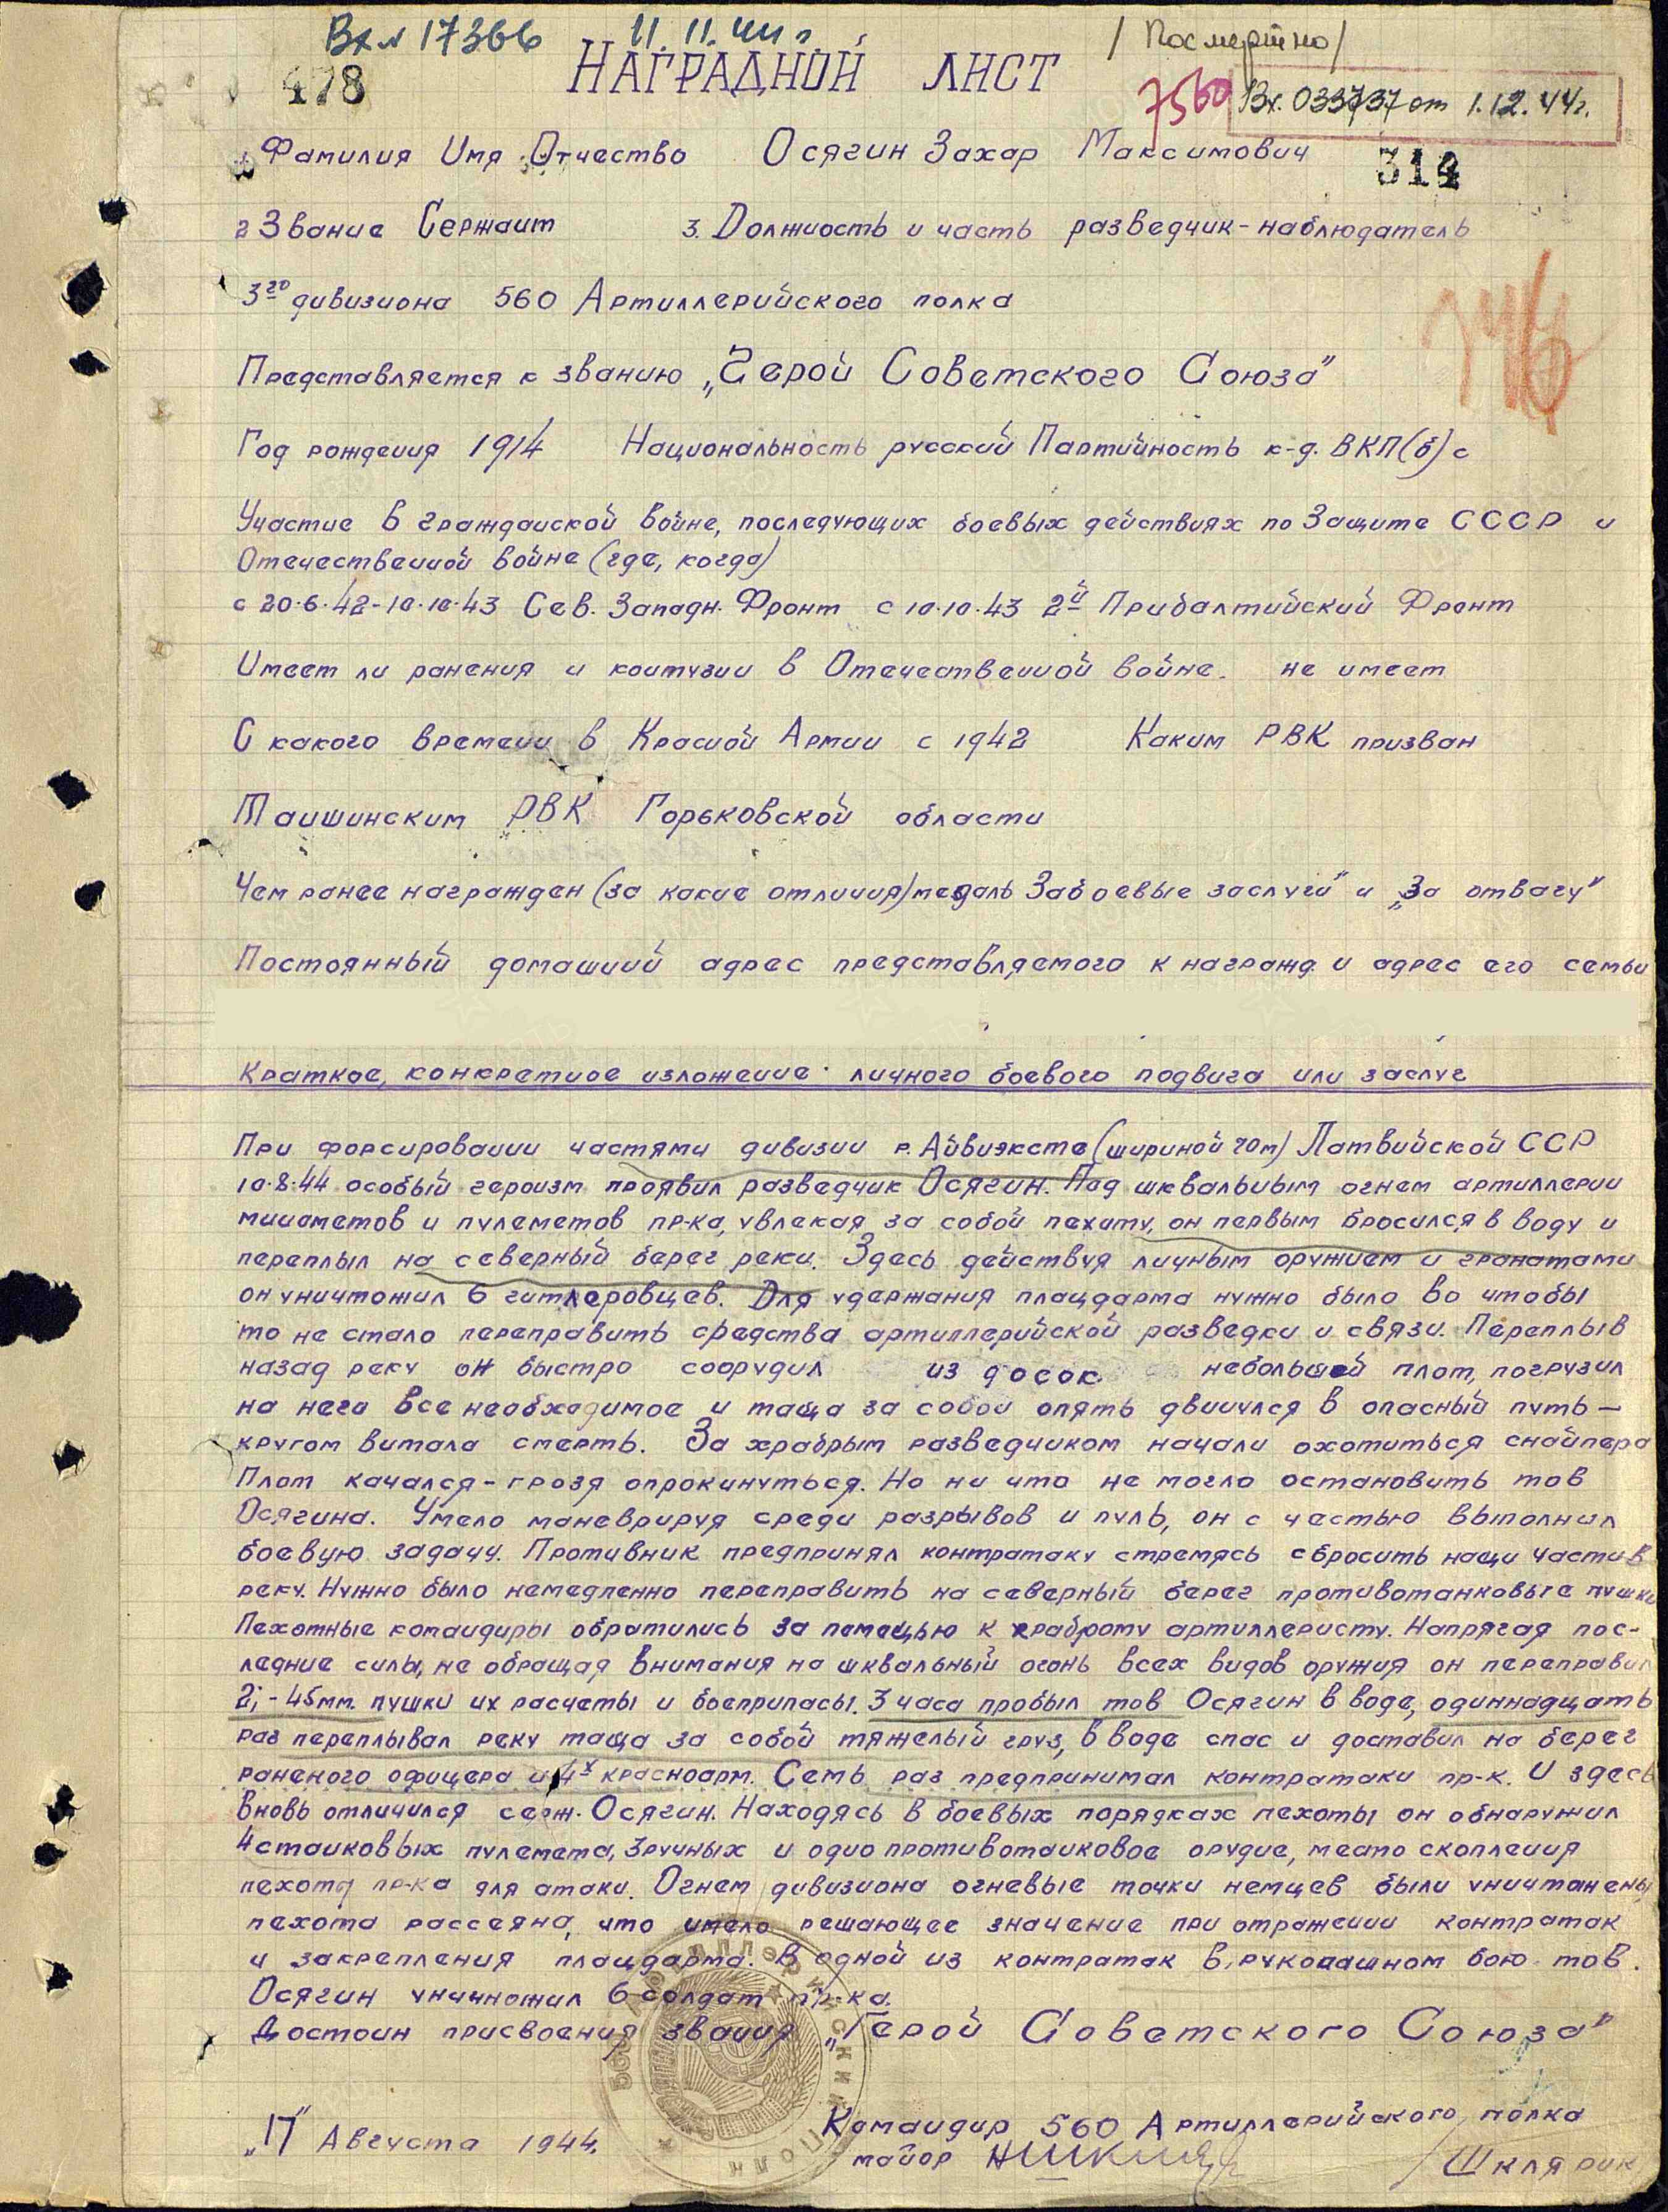 Вх № 17366 11.11.44 г.
/Посмертно/
478
НАГРАДНОЙ ЛИСТ
7560 Вх. 033737 от 1.12.44г.
Фамилия Имя Отчество Осягин Захар Максимович
314
2 Звание Сержант 3. Должность и часть разведчик-наблюдатель
3го дивизиона 560 Артиллерийского полка
Представляется к званию „Герой Советского Союза"
Год рождения 1914 Национальность русский Партийность к-д. ВКП(б) с
Участие в гражданской войне, последующих боевых действиях по Защите СССР и
Отечественной войне (где, когда)
с 20.6.42-10.10.43 Сев. Западн. Фронт с 10.10.43 2й Прибалтийский Фронт
Имеет ли ранения и контузии в Отечественной войне. не имеет
С какого времени в Красной Армии с 1942 Каким РВК призван
Таишинским РВК Горьковской области
Чем ранее награжден (за какие отличия) медаль За боевые заслуги" и „За отвагу"
Постоянный домашний адрес представляемого к награжд. и адрес его семьи
Краткое, конкретное изложение личного боевого подвига или заслуг
При форсировании частями дивизии р. Айвиэксте (шириной 70м) Латвийской ССР
10.8.44 особый героизм проявил разведчик Осягин. Под шквальным огнем артиллерии
минометов и пулеметов пр-ка, увлекая за собой пехоту, он первым бросился в воду и
переплыл на северный берег реки. Здесь действуя личным оружием и гранатами
он уничтожил 6 гитлеровцев. Для удержания плацдарма нужно было во чтобы
то не стало переправить средства артиллерийской разведки и связи. Переплыв
назад реку он быстро соорудил из досок небольшой плот, погрузил
на него все необходимое и таща за собой опять двинулся в опасный путь —
кругом витала смерть. За храбрым разведчиком начали охотиться снайпера
Плот качался - грозя опрокинуться. Но ни что не могло остановить тов
Осягина. Умело маневрируя среди разрывов и пуль, он с честью выполнил
боевую задачу. Противник предпринял контратаку стремясь сбросить наши части в
реку. Нужно было немедленно переправить на северный берег противотанковые пушки
Пехотные командиры обратились за помощью к храброму артиллеристу. Напрягая пос-
ледние силы, не обращая внимания на шквальный огонь всех видов оружия он переправил
2;-45мм. пушки их расчеты и боеприпасы. 3 часа пробыл тов Осягин в воде, одиннадцать
раз переплывал реку таща за собой тяжелый груз, в воде спас и доставил на берег
раненого офицера и 4х красноарм. Семь раз предпринимал контратаки пр-к. И здесь
вновь отличился серж. Осягин. Находясь в боевых порядках пехоты он обнаружил
4 станковых пулемета, 3 ручных и одно противотанковое орудие, место скопления
пехоты пр-ка для атаки. Огнем дивизиона огневые точки немцев были уничтожены
пехота рассеяна, что имело решающее значение при отражении контратак
и закрепления плацдарма. В одной из контратак в рукопашном бою тов.
Осягин уничтожил 6 солдат пр-ка.
Достоин присвоения звания „Герой Советского Союза"
Командир 560 Артиллерийского полка
„17" Августа 1944.
майор Шкляр / Шклярик